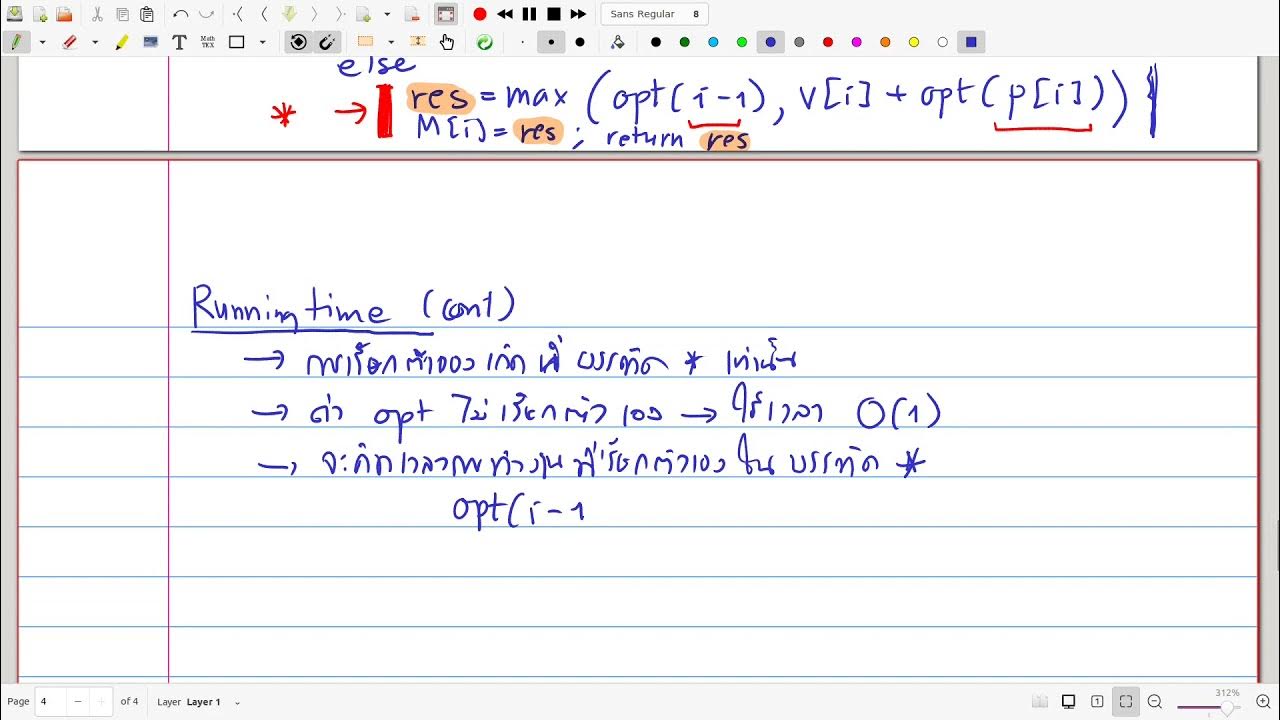 Sans Regular 8
T Math TEX
else
* → res = max (opt(i-1), v[i] + opt(p[i]))
M[i] = res ; return res
Running time (cont)
→ การเรียกตัวเองเกิดที่ บรรทัด * เท่านั้น
→ ถ้า opt ไม่เรียกตัวเอง → ใช้เวลา O(1)
→ จะคิดเวลาการทำงานที่เรียกตัวเองในบรรทัด *
opt(i-1
Page 4 of 4 Layer Layer 1 1 312%